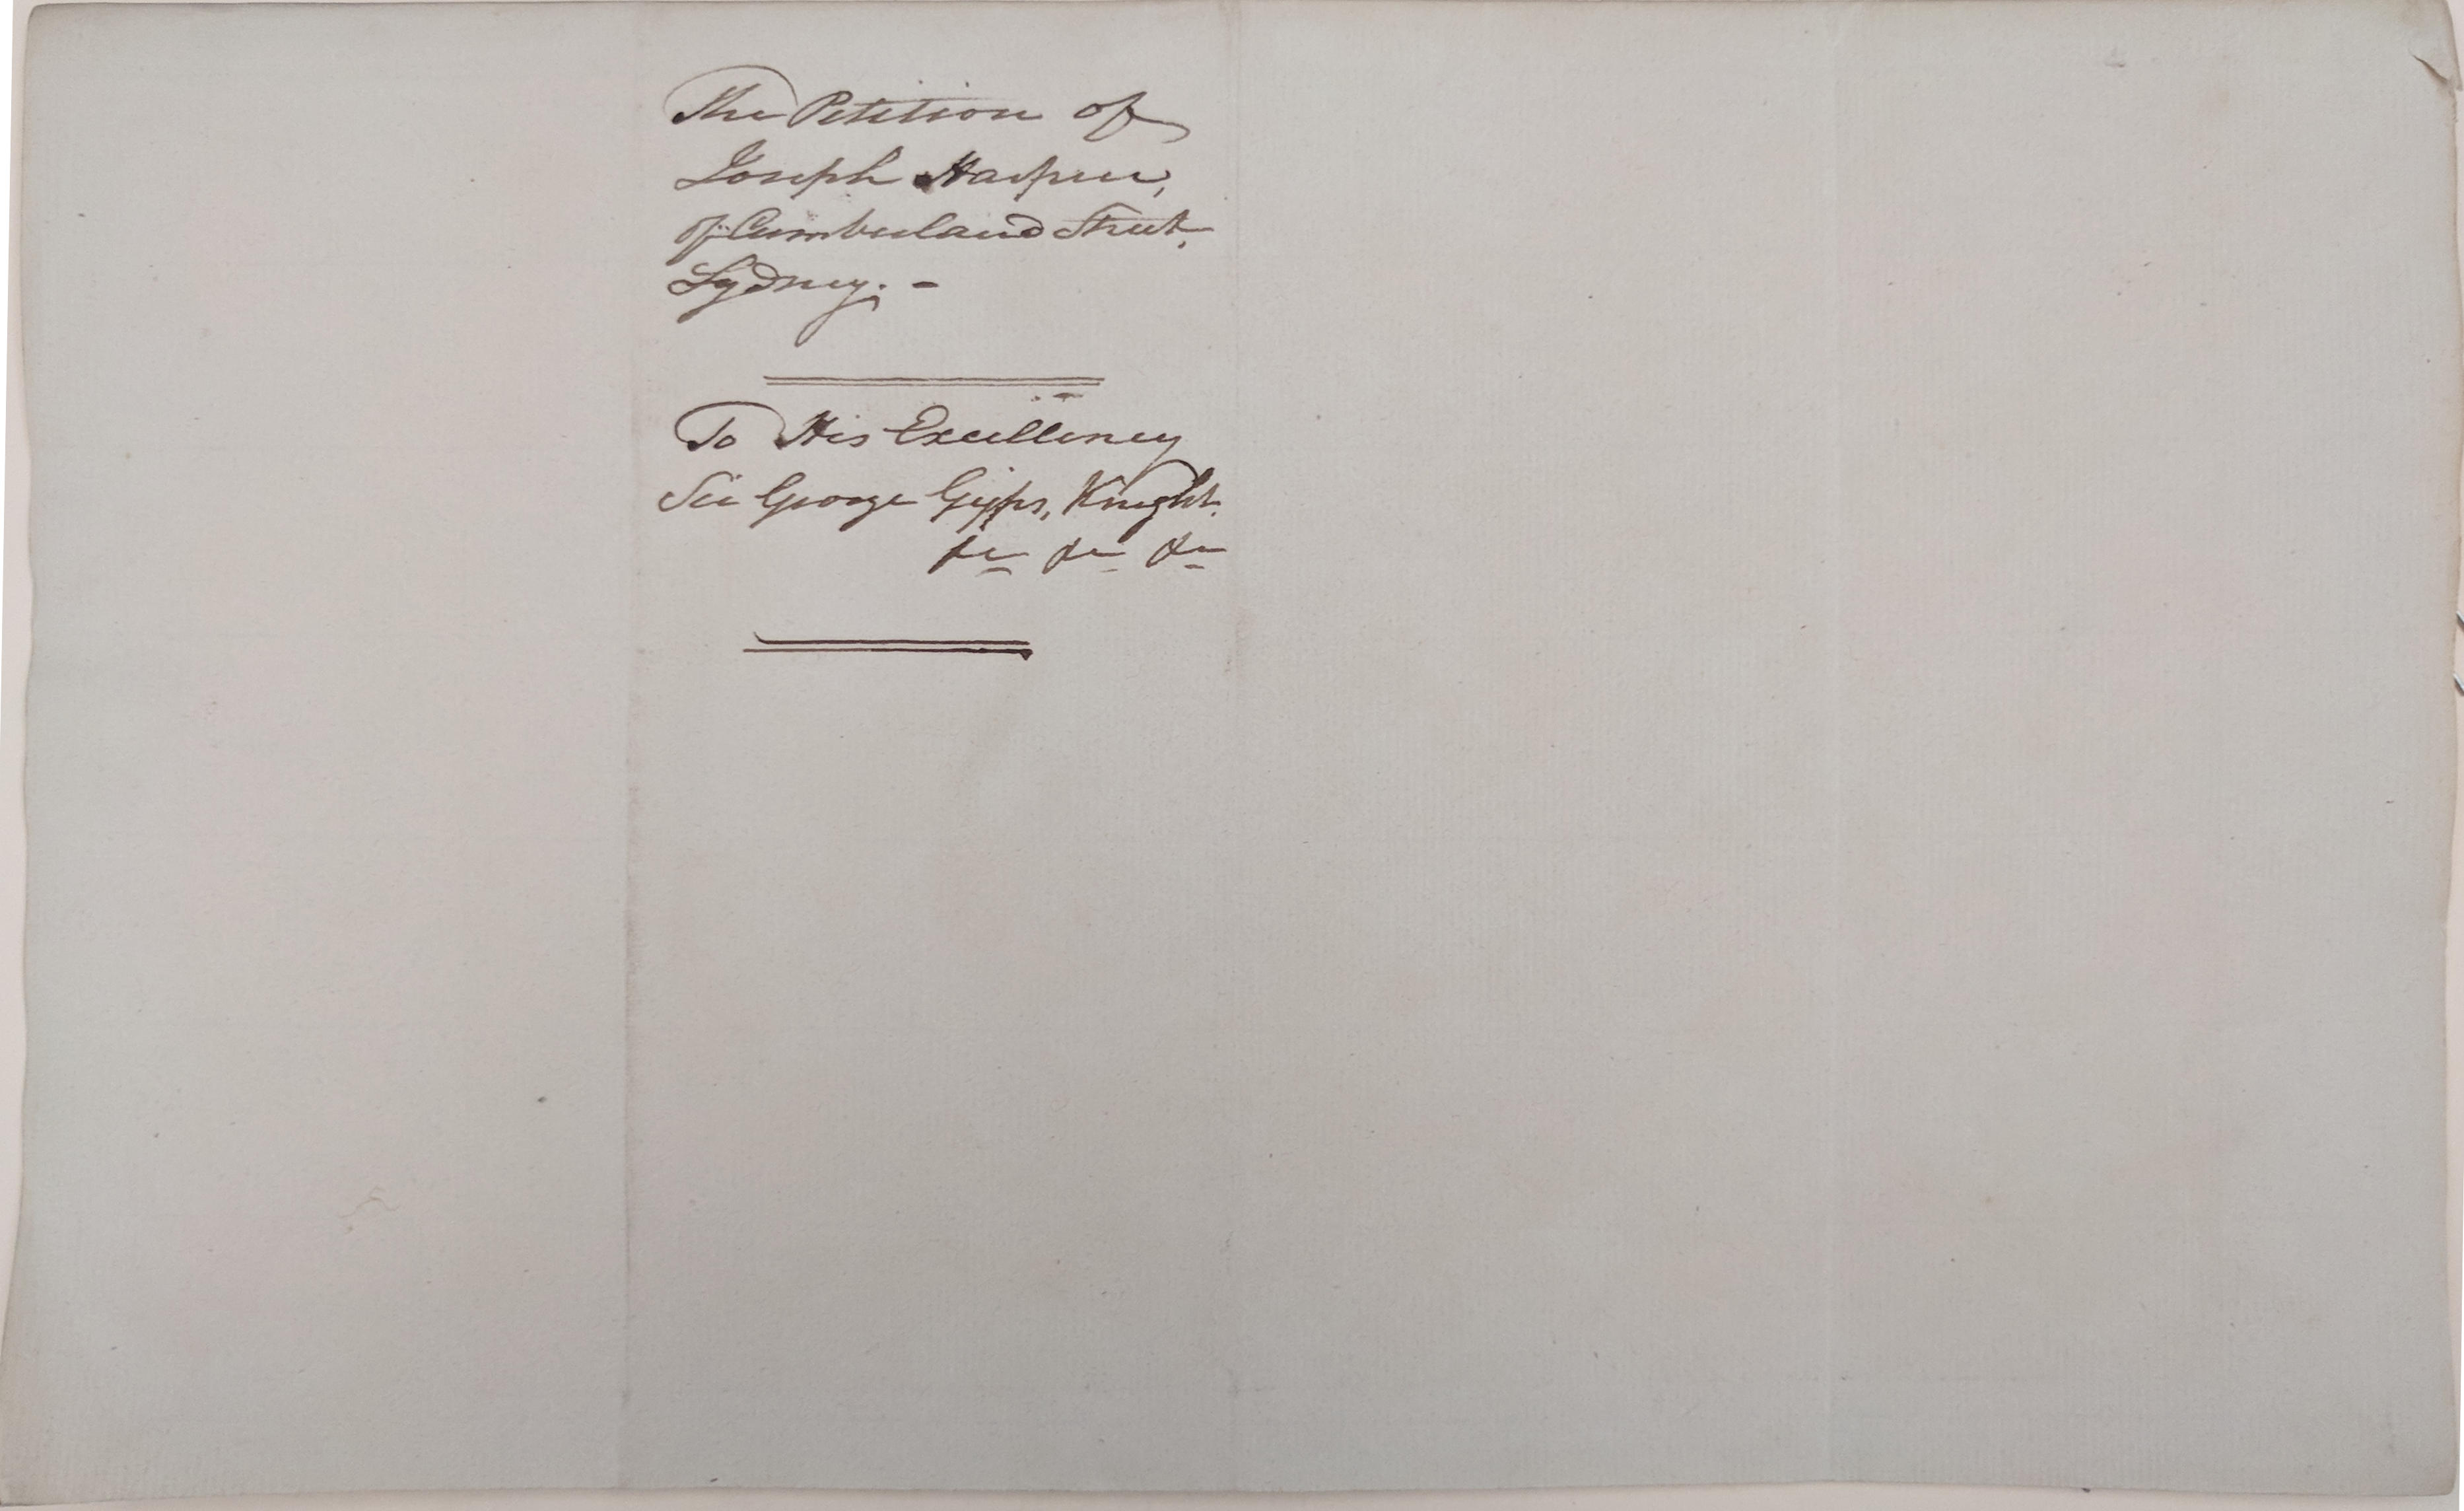 The Petition of
Joseph Harper,
of Cumberland Street,
Sydney. -
To His Excellency
Sir George Gipps, Knight.
&c &c &c